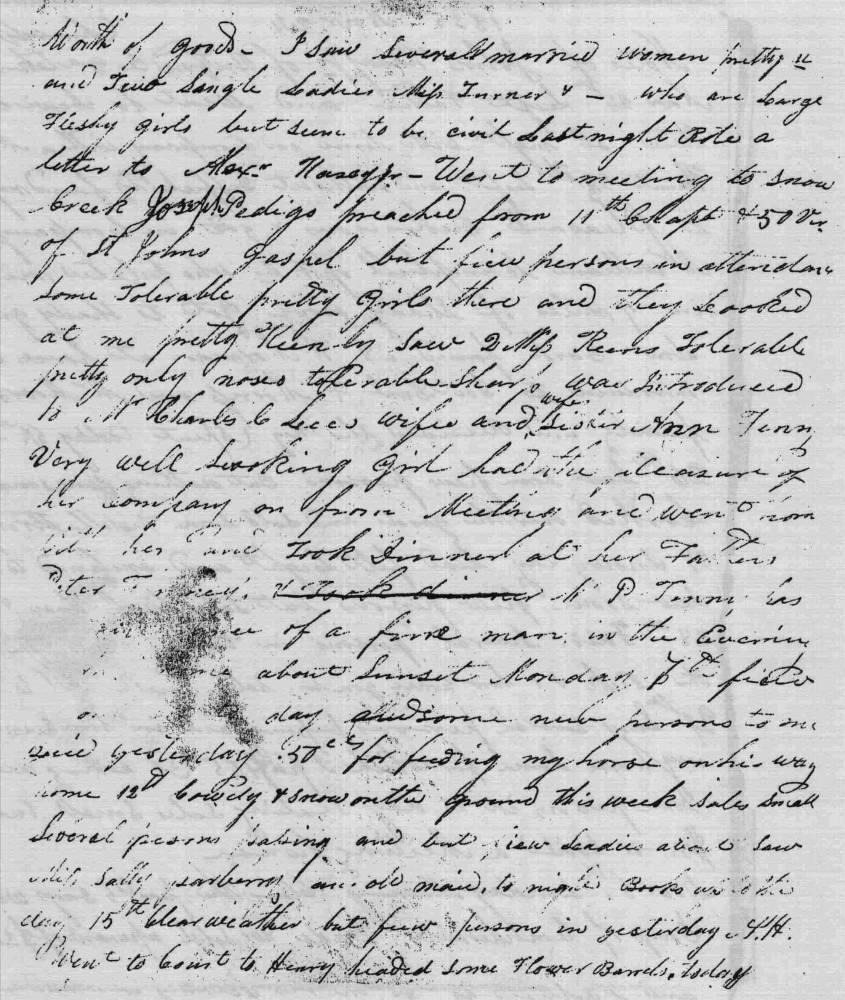 Worth of goods – I saw Severall married women pretty
and Two Single Ladies Miss Turner & – who are Large
Fleshy girls but seem to be civil Last night Rote a
letter to Alexr – Went to meeting to snow
Creek Joseph Pedigo preached from 11th Chapt & 50 Vr
of St Johns Gospel but fiew persons in attendanc
some Tolerable pretty Girls there and they Looked
at me pretty Keenly Saw 2 Miss Reens Tolerable
pretty only noses tolerable Sharp was Introduced
to Mr Charles C Lees wife and wifes Sister Ann Finny
Very well Looking Girl had the pleasure of
her Company on from Meeting and went hom
with her and Took Dinner at her Fathers
Peter Finney's & Took dinner Mr P Finny has
of a fine man in the Evening
about Sunset Monday 7th fiew
day some new persons to me
yesterday .50 cts for feeding my horse on his way
home 12th Cowdy & snow on the ground this week sales small
Several persons passing and but fiew Leadies about Saw
Miss Sally parberry an old maid, to night Books
day 15th Clear weather but fiew persons in yesterday
Went to Court to Henry headed some Flower Barrels, today